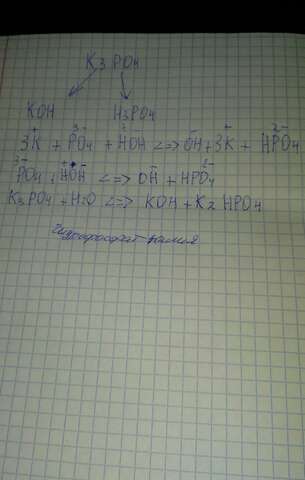 K3PO4
KOH H3PO4
3K⁺ + PO4³⁻ + HOH <=> OH⁻ + 3K⁺ + HPO4²⁻
PO4³⁻ + HOH <=> OH⁻ + HPO4²⁻
K3PO4 + H2O <=> KOH + K2HPO4
гидрофосфат калия